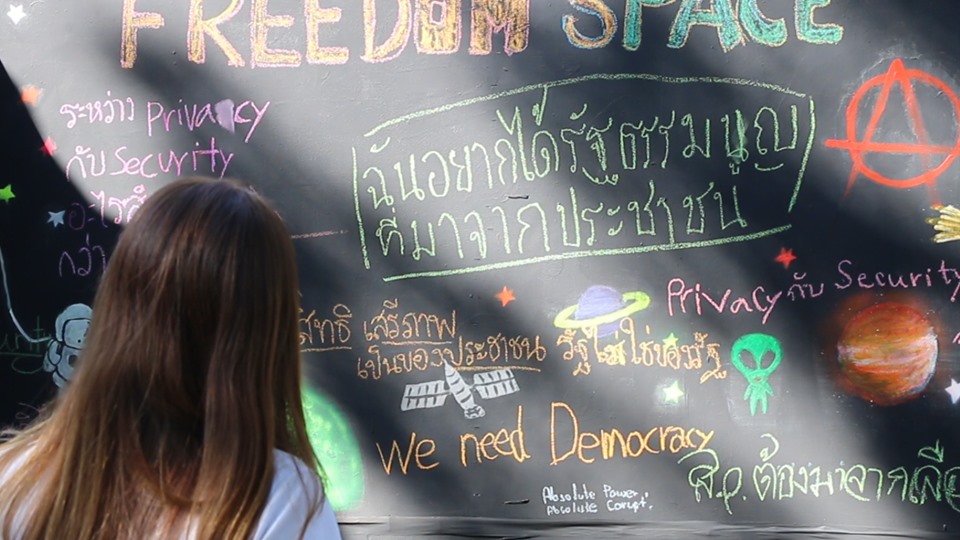 FREEDOM SPACE
ระหว่าง Privacy
กับ Security
อะไรสำ
กว่า
ฉันอยากได้รัฐธรรมนูญ
ที่มาจากประชาชน
Privacy กับ Security
สิทธิ เสรีภาพ
เป็นของประชาชน รัฐไม่ใช่ของรัฐ
we need Democracy
ส.ว. ต้องมาจากเลือ
Absolute Power,
Absolute Corupt.